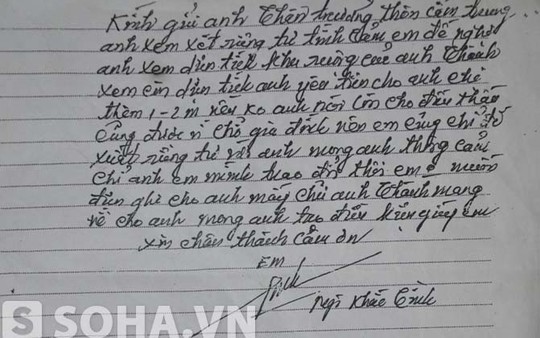 Kính gửi anh Thân trưởng thôn Cẩm trung
anh xem xét riêng tư tình cảm em đề nghị
anh xem diện tích khu ruộng của anh Thành
xem em diện tích anh yêu tiên cho anh chị
thêm 1-2 m nếu ko anh nói lên cho
cũng được vì chỗ gia đình nên em cũng chỉ đề
xuất riêng tư với anh mong anh thông cảm
chỉ anh em mình trao đổi thôi em muốn
ghi cho anh mấy chữ anh Thành mang
về cho anh mong anh tạo điều kiện giúp em
xin chân thành cảm ơn
EM
Ngô Khắc
S SOHA.VN